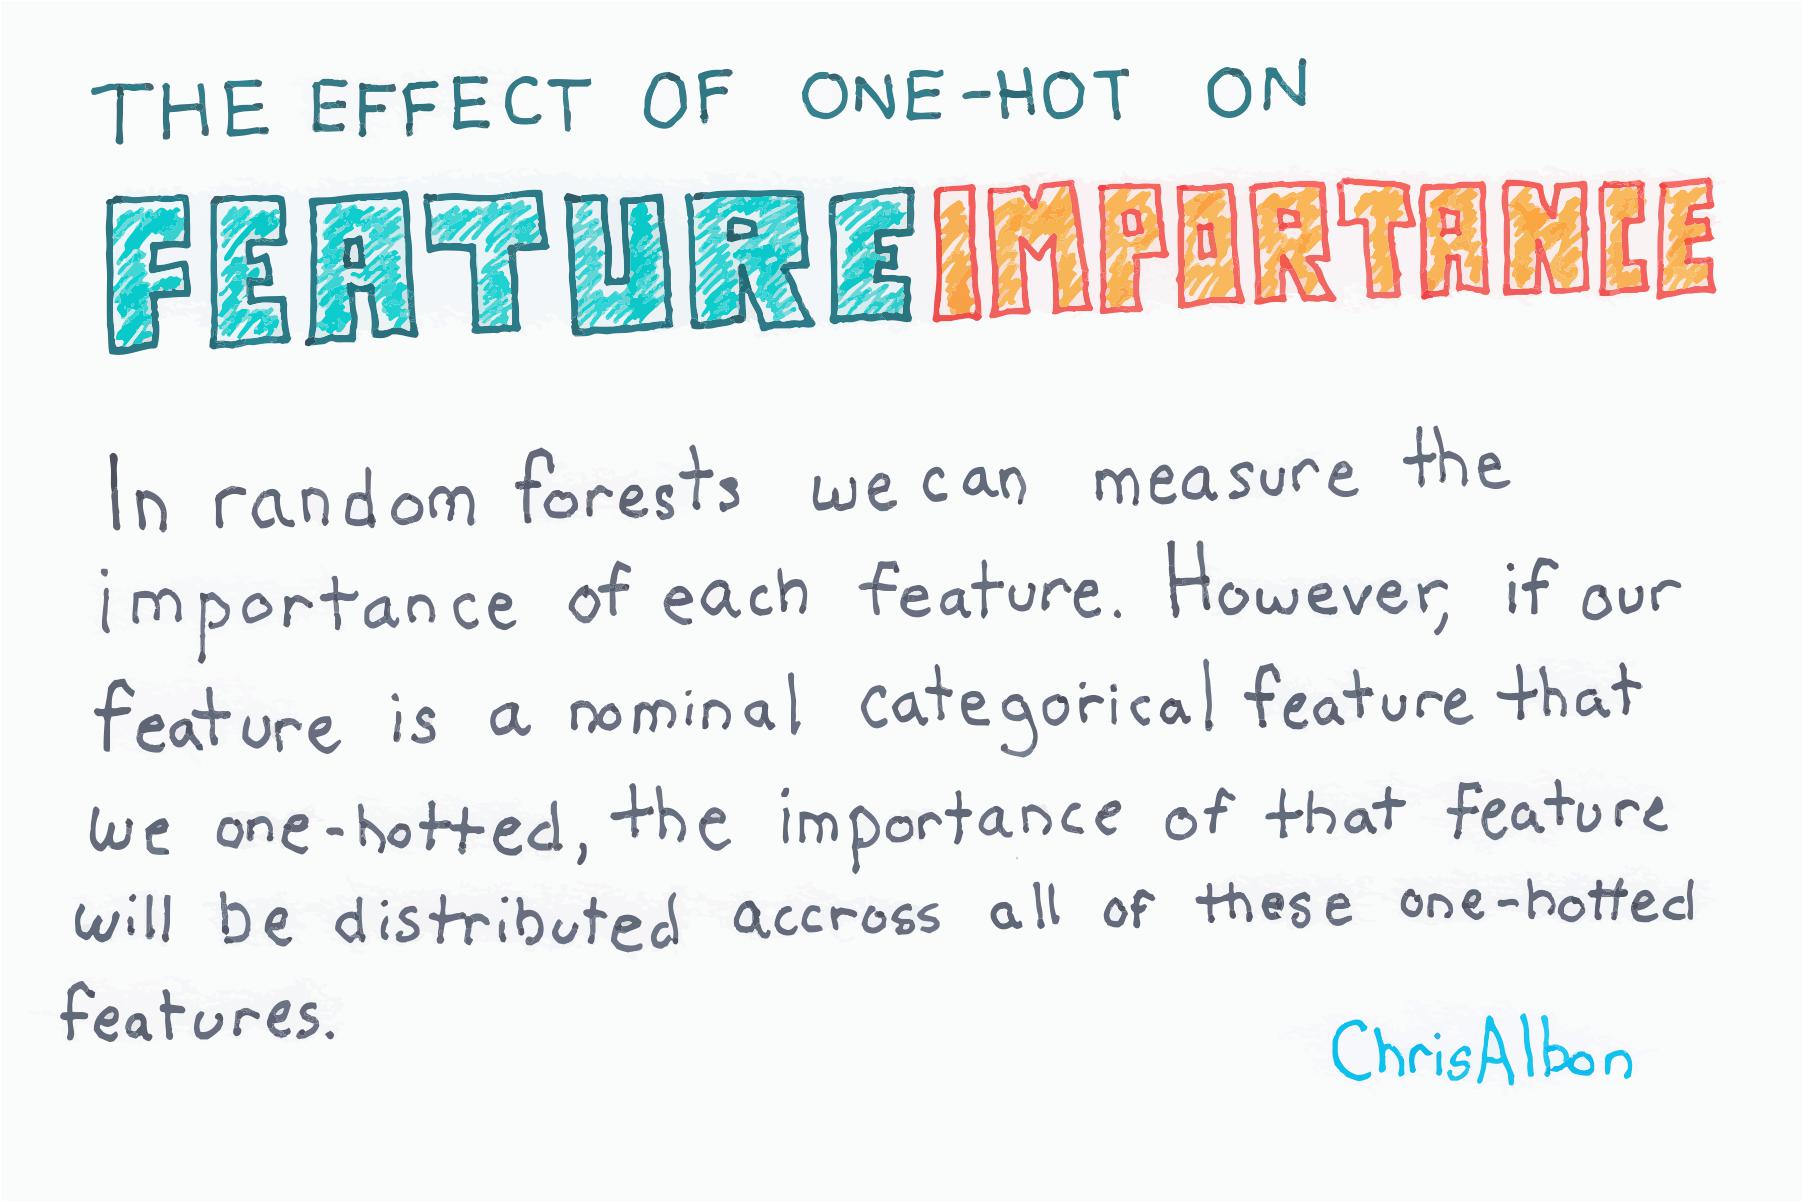 THE EFFECT OF ONE-HOT ON
FEATURE IMPORTANCE
In random forests we can measure the
importance of each feature. However, if our
feature is a nominal categorical feature that
we one-hotted, the importance of that feature
will be distributed accross all of these one-hotted
features.
ChrisAlbon